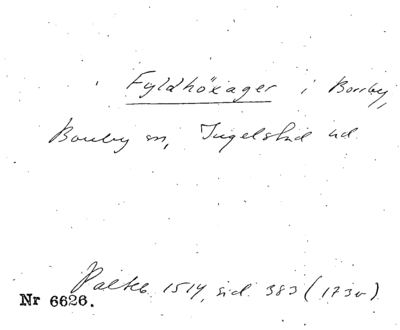 Fyldhöxager i Borrby,
Borrby sn, Ingelstad hd
Palteb. 1514, sid. 383 (1730)
Nr 6626.